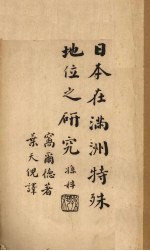 日本在滿洲特殊
地位之研究
孫科
窩爾德著
葉天倪譯